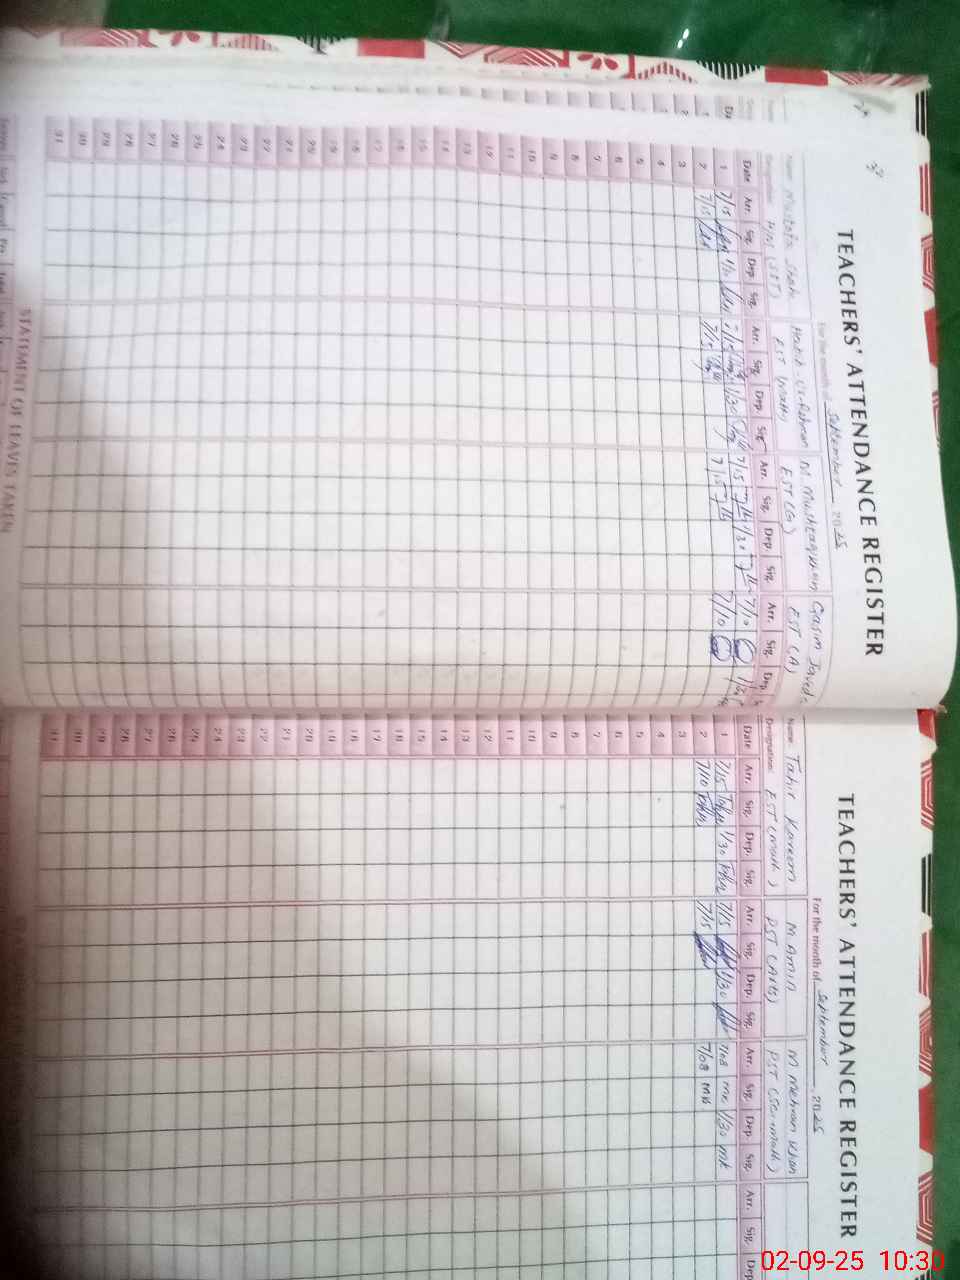 TEACHERS' ATTENDANCE REGISTER
For the month of September 2025
Name: Mustafa Shah Habib Ur Rehman M Mushtaq Khan Qasim Javed
Designation: EST (Math) EST (G) EST (A)
Date Arr. Sig. Dep. Sig. Arr. Sig. Dep. Sig. Arr. Sig. Dep. Sig. Arr. Sig. Dep.
1 7/15 7/15 1/30 7/15 1/30 7/10
2 7/15 7/15 7/15 7/10
3
4
5
6
7
8
9
10
11
12
13
14
15
16
17
18
19
20
21
22
23
24
25
26
27
28
29
30
31
STATEMENT OF LEAVES TAKEN
TEACHERS' ATTENDANCE REGISTER
For the month of September, 2025
Name: Tahir Kareem M Amin M Mehran Khan
Designation: EST (Math) PST (Arts) PST (Sci-math)
Date Arr. Sig. Dep. Sig. Arr. Sig. Dep. Sig. Arr. Sig. Dep. Sig. Arr. Sig. Dep
1 7/15 1/30 7/15 1/30 7/08 mk 1/30 mk
2 7/10 7/15 7/08 mk
3
4
5
6
7
8
9
10
11
12
13
14
15
16
17
18
19
20
21
22
23
24
25
26
27
28
29
30
31
02-09-25 10:30